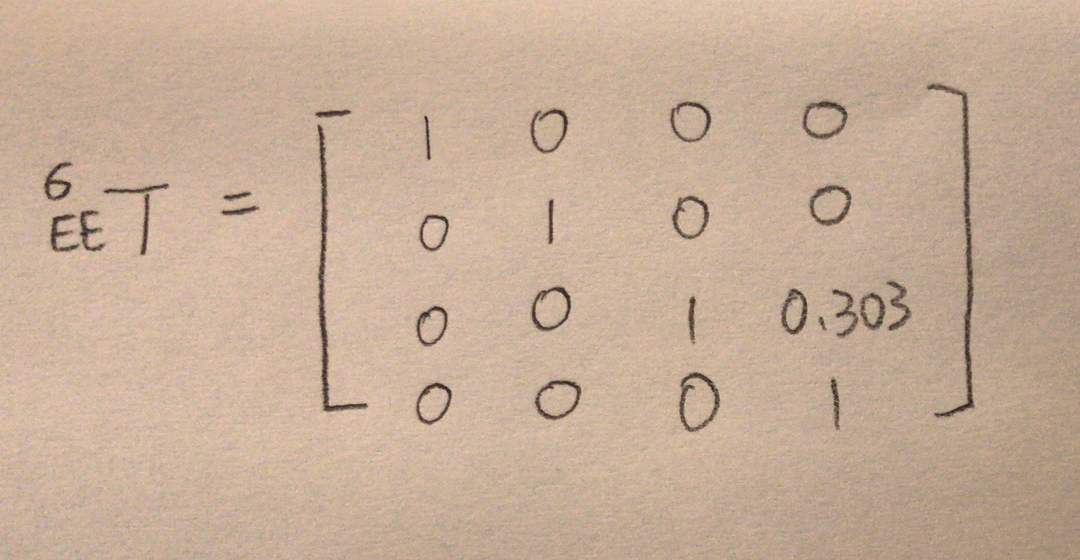 6
EE T = [ 1 0 0 0
0 1 0 0
0 0 1 0.303
0 0 0 1 ]